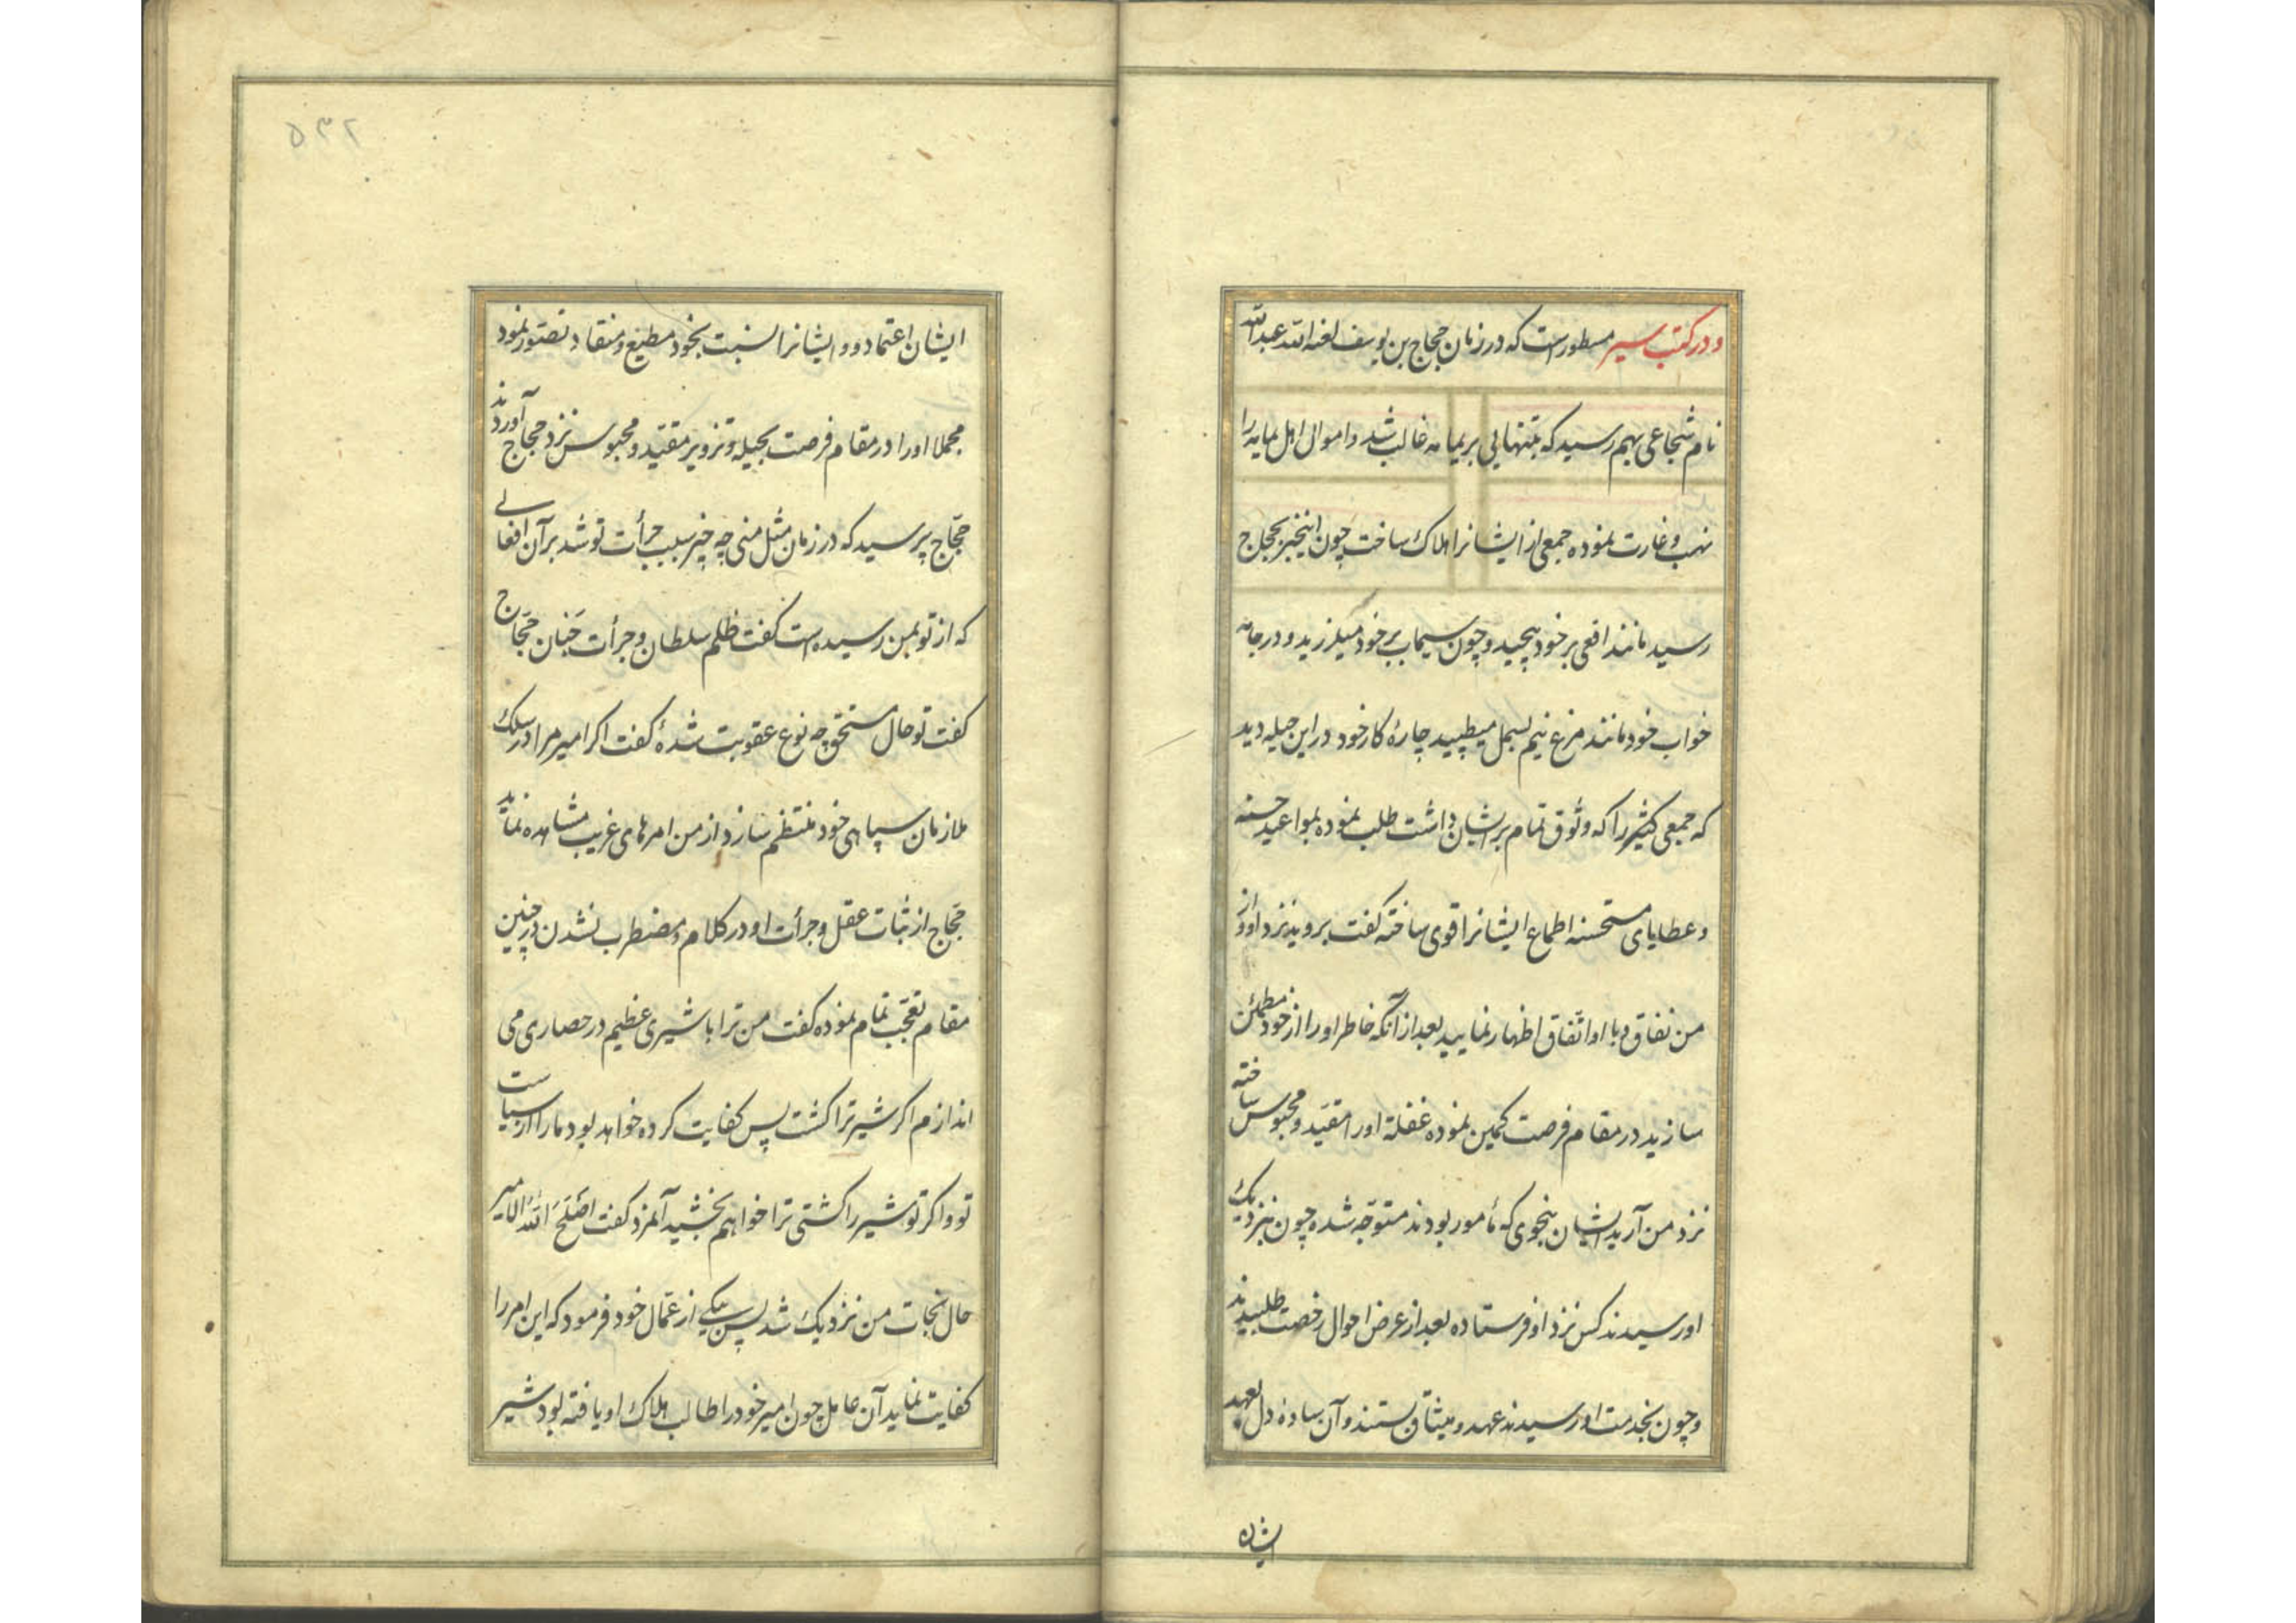 و در کتب سیر مسطور است که در زمان حجاج بن یوسف لعنه الله عبدالله
نام شجاعی بهم رسید که بتنهایی بریمامه غالب شد و اموال اهل یمامه را
نهب و غارت نموده جمعی از ایشانرا هلاک ساخت چون اینخبر بحجاج
رسید مانند افعی بر خود پیچید و چون سیماب بر خود میلرزید و در جامه
خواب خود مانند مرغ نیم بسمل میطپید چارهٔ کار خود در این حیله دید
که جمعی کثیر را که وثوق تمام بر ایشان داشت طلب نموده بمواعید حسنه
و عطایای مستحسنه اطماع ایشانرا قوی ساخته گفت بروید نزد او و از
من نفاق و با او اتّفاق اظهار نمایید بعد از آنکه خاطر او را از خود مطمئن
سازید در مقام فرصت کمین نموده غفلة او را مقیّد و محبوس ساخته
نزد من آرید ایشان بنحوی که مأمور بودند متوجّه شده چون بنزدیک
او رسیدند کس نزد او فرستاده بعد از عرض احوال رخصت طلبیدند
و چون بخدمت او رسیدند عهد و میثاق بستند و آن ساده دل بعهد
ایشان
۲۳۵
ایشان اعتماد و ایشانرا نسبت بخود مطیع و منقاد تصوّر نمود
مجملا او را در مقام فرصت بحیله و تزویر مقیّد و محبوس نزد حجاج آوردند
حجّاج پرسید که در زمان مثل منی چه چیز سبب جرأت تو شد بر آن افعالی
که از تو بمن رسیده است گفت ظلم سلطان و جرأت جَنان حجّاج
گفت تو حال مستحقّ چه نوع عقوبت شدهٔ گفت اکر امیر مرا در سلک
ملازمان سپاهی خود منتظم سازد از من امرهای غریب مشاهده نماید
حجّاج از ثبات عقل و جرأت او در کلام و مضطرب نشدن در چنین
مقام تعجّب تمام نموده گفت من ترا با شیری عظیم در حصاری می
اندازم اکر شیر ترا کشت پس کفایت کرده خواهد بود ما را از سیاست
تو و اکر تو شیر را کشتی ترا خواهم بخشید آنمرد گفت اَصْلَحَ اللهُ الامیر
حال نجات من نزدیک شد پس بیکی از عمّال خود فرمود که این امر را
کفایت نماید آن عامل چون امیر خود را طالب هلاک او یافته بود شیر